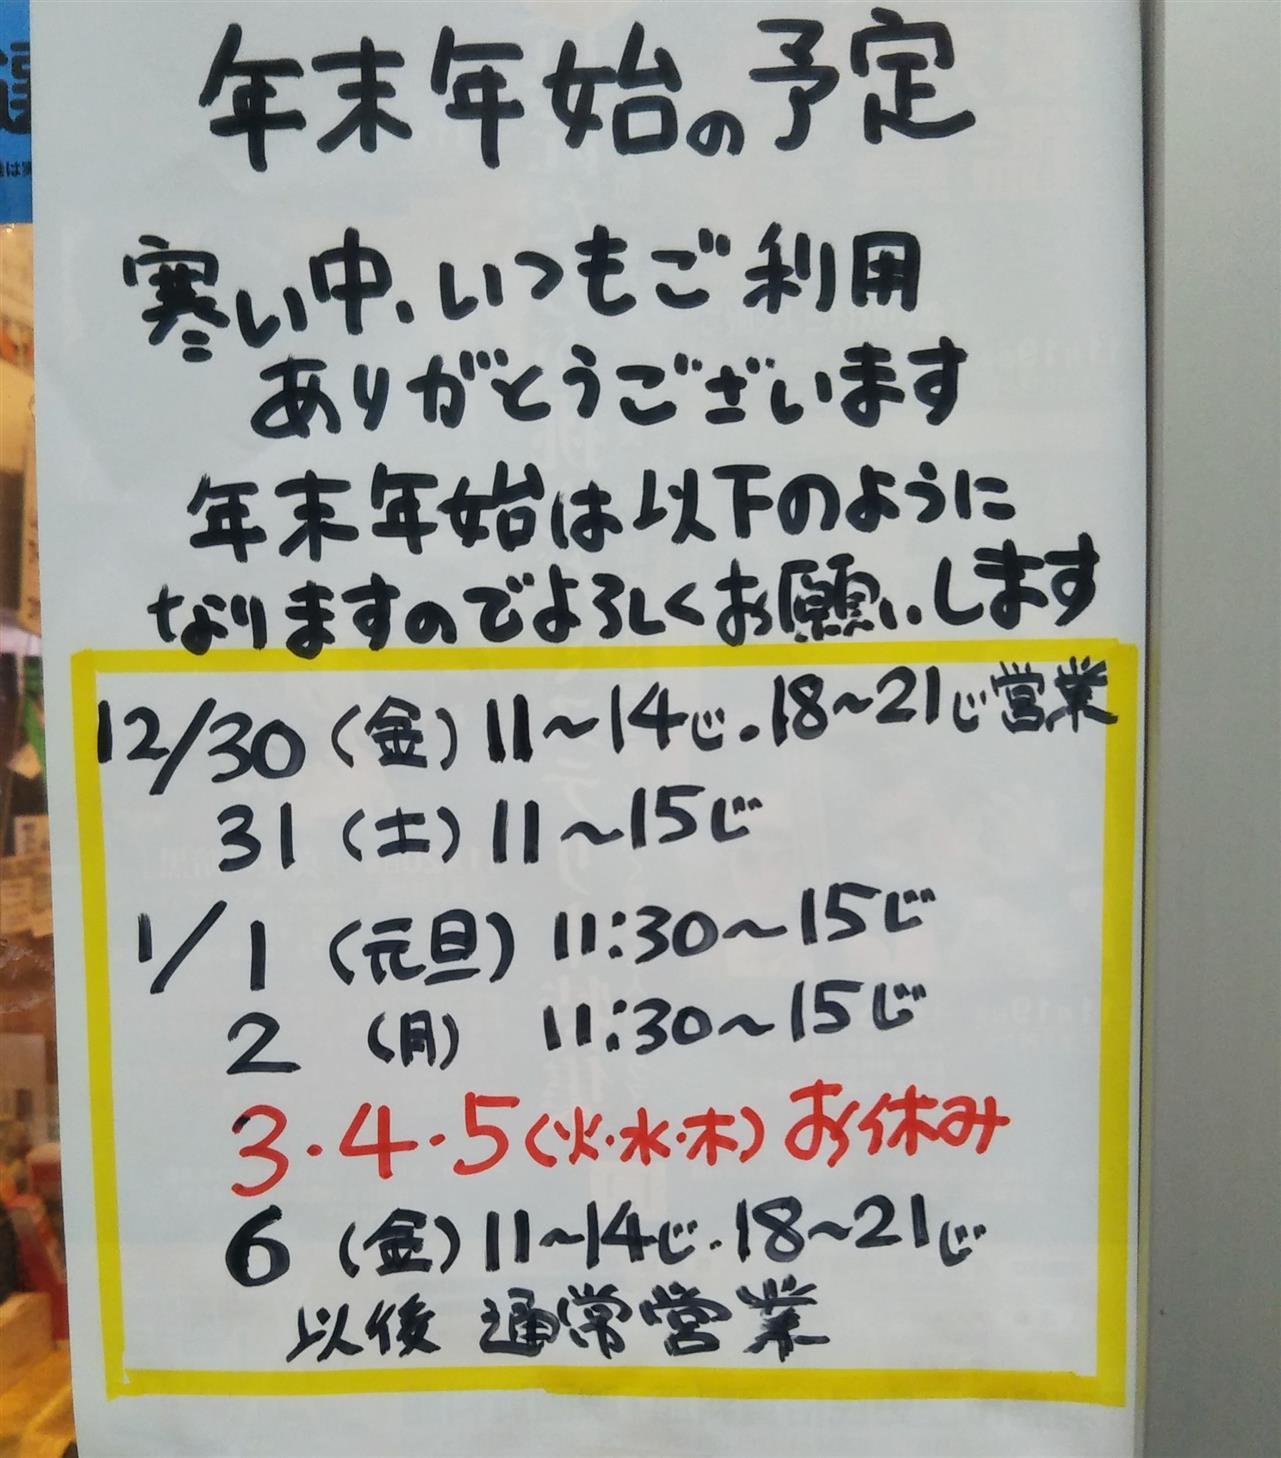 年末年始の予定
寒い中、いつもご利用
ありがとうございます
年末年始は以下のように
なりますのでよろしくお願いします
12/30（金）11〜14じ.18〜21じ営業
31（土）11〜15じ
1/1（元旦）11:30〜15じ
2（月）11:30〜15じ
3・4・5（火・水・木）お休み
6（金）11〜14じ.18〜21じ
以後 通常営業